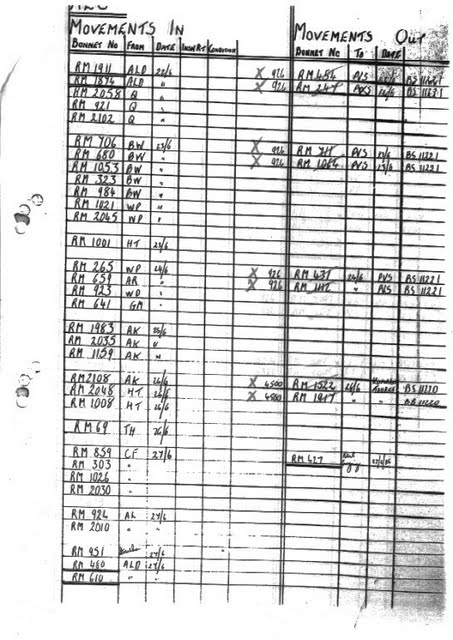 MOVEMENTS IN
BONNET No FROM DATE INSN RT CONDITION
RM 1911 ALD 22/6
RM 1874 ALD "
RM 2058 Q "
RM 921 Q "
RM 2102 Q "
RM 706 BW 23/6
RM 680 BW "
RM 1053 BW "
RM 323 BW "
RM 984 BW "
RM 1021 WP "
RM 2045 WP "
RM 1001 HT 23/6
RM 265 WP 24/6
RM 659 AR "
RM 923 WD "
RM 641 GM "
RM 1983 AK 25/6
RM 2035 AK "
RM 1159 AK "
RM 2108 AK 26/6
RM 2048 HT 26/6
RM 1008 HT 26/6
RM 69 TH 26/6
RM 859 CF 27/6
RM 303 "
RM 1026 "
RM 2030 "
RM 924 AL 27/6
RM 2010 " "
RM 951 27/6
RM 480 ALD 27/6
RM 610 " "
MOVEMENTS OUT
BONNET No TO DATE
X 926 RM PVS
X 926 RM PVS
X 926 RM PVS 23/6 BS 11221
X 926 RM PVS 23/6 BS 11221
X 926 RM 437 24/6 PVS BS 11221
X 926 RM " PVS BS 11221
X 4500 RM 1522 26/6 BS 11220
X 4500 RM 1917 " "
RM 427